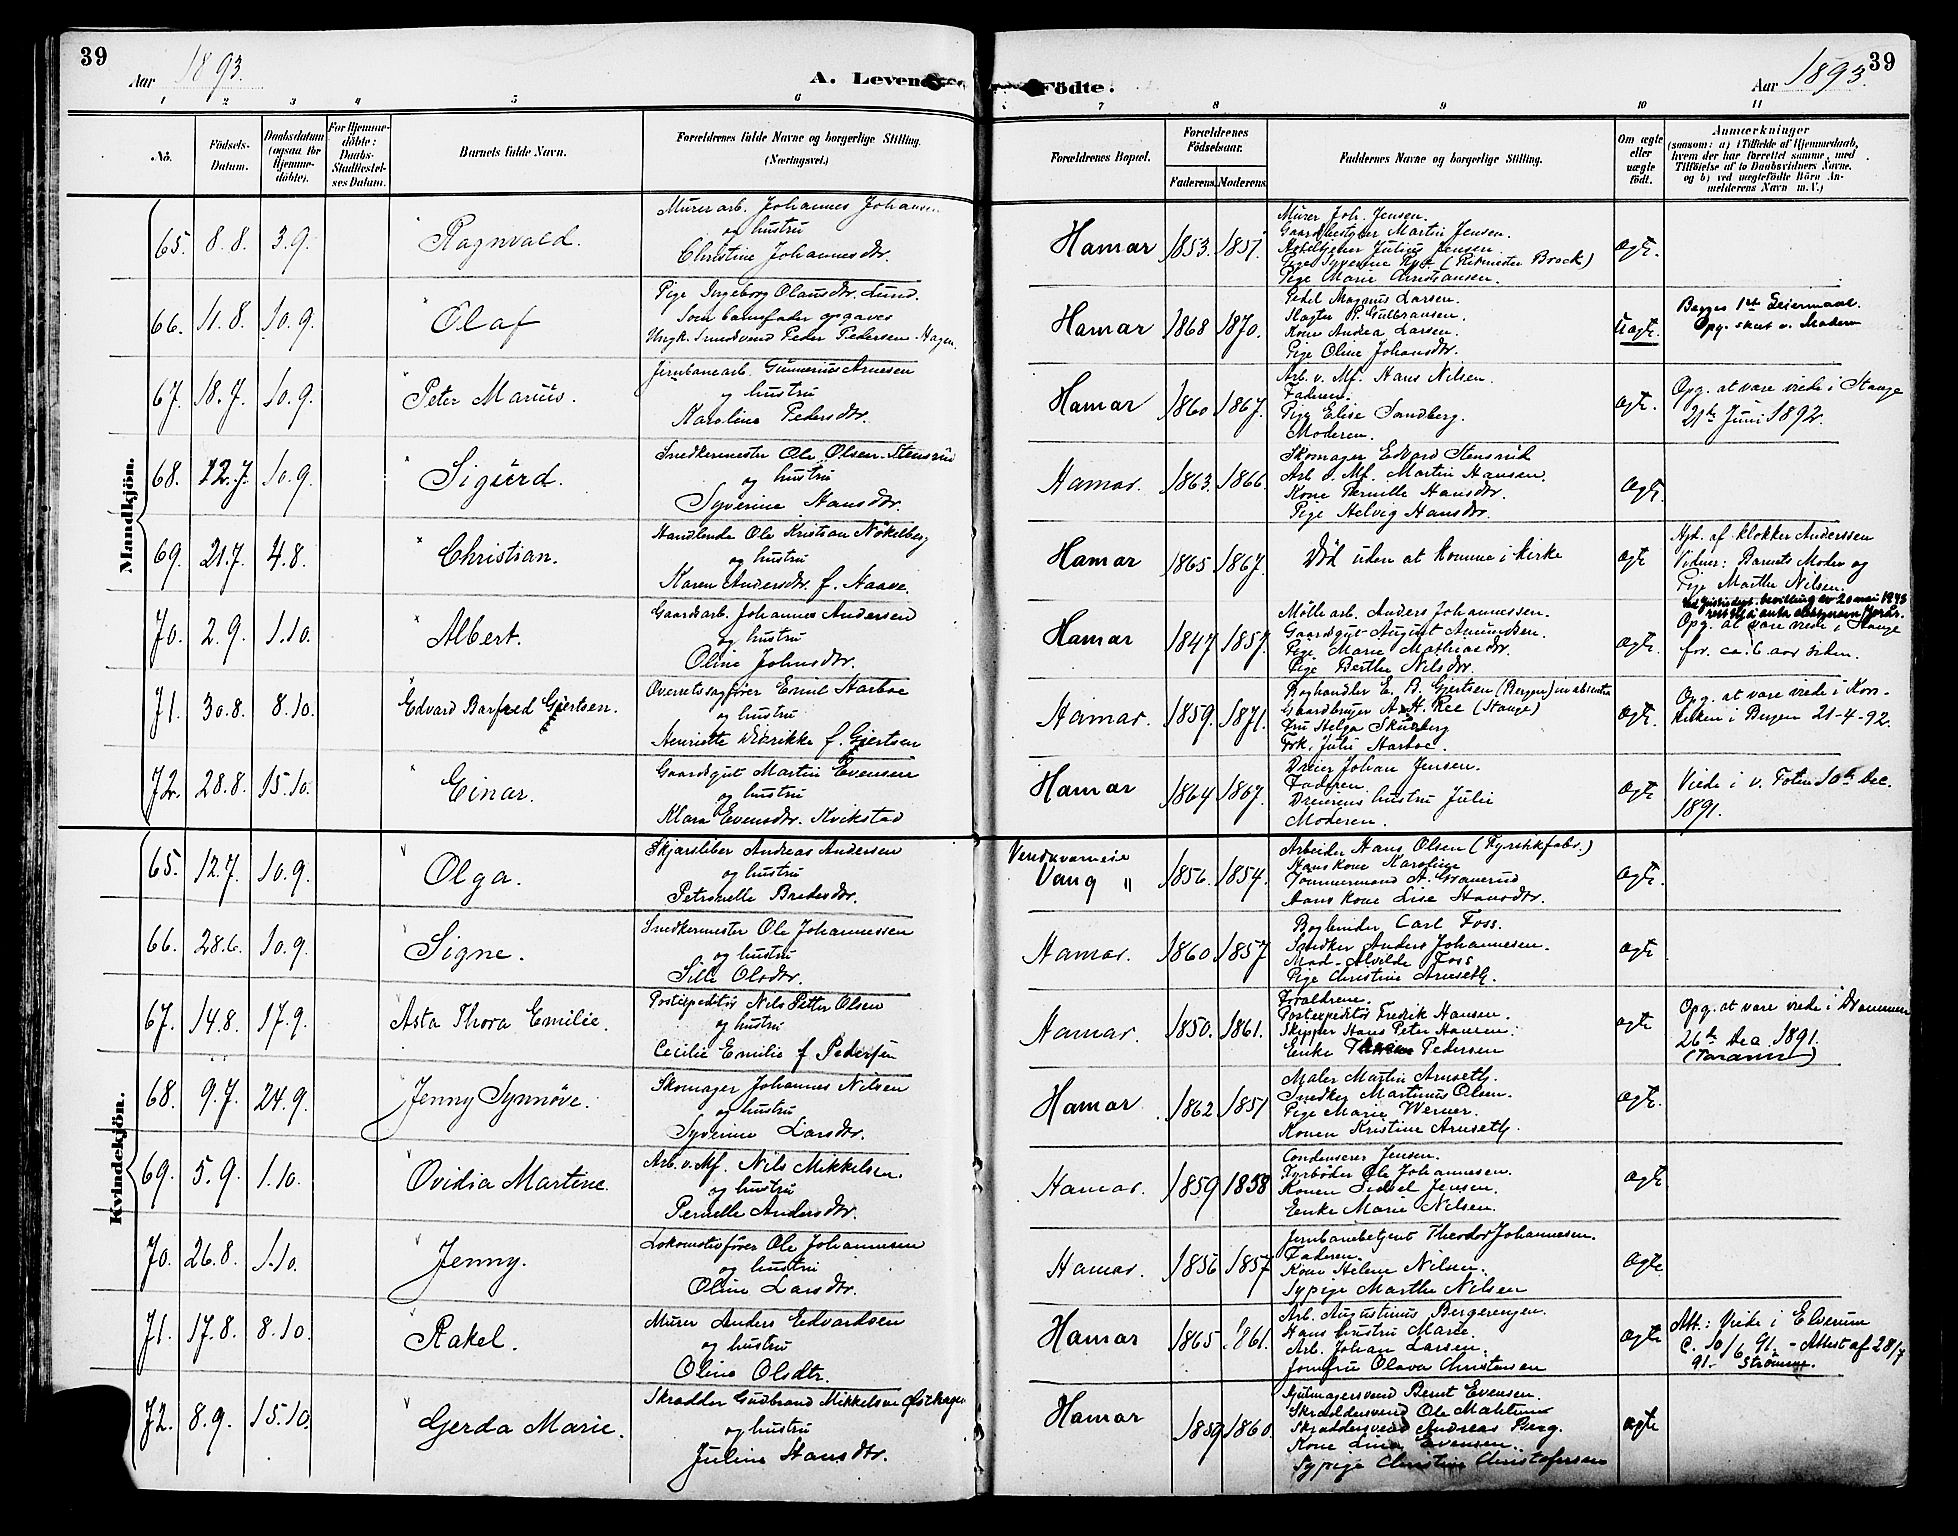 39
Aar 1893.
A. Levende
Födte.
Aar 1893.
39
1 2 3 4 5 6 7 8 9 10 11
No.
Födsels-
Datum.
Daabsdatum
(ogsaa for
Hjemme-
döbte).
For Hjemme-
döbte:
Daabs-
Stadfæstel-
ses Datum.
Barnets fulde Navn.
Forældrenes fulde Navne og borgerlige Stilling.
(Næringsvei.)
Forældrenes Bopæl.
Forældrenes
Födselsaar.
Faderens. Moderens.
Faddernes Navne og borgerlige Stilling.
Om ægte
eller
uægte
födt.
Anmærkninger
(saasom: a) i Tilfælde af Hjemmedaab,
hvem der har forrettet samme, med
Tilföielse af to Daabsvidners Navne,
og b) ved uægtefödte Börn An-
melderens Navn m. V.)
Mandkjön.
65. 8.8. 3.9. Ragnvald.
Murerarb. Johannes Johansen
og hustru
Christine Johannesdtr.
Hamar 1853. 1851.
Murer Joh. Jensen.
Gaardbestyrer Martin Jensen.
Julius Jensen.
Pige Syverine
Pige Marie Christiansen.
ægte.
66. 11.8. 10.9. Olaf
Pige Ingeborg Olausdtr. Lund.
Som barnefader opgaves
Ungk. Smedsvend Peder Pedersen Hagen.
Hamar 1868 1870.
Magnus Larsen.
Slagter P. Gulbransen.
Kone Andrea Larsen.
Pige Oline Johansdtr.
Uægte.
Begges 1ste Leiermaal.
Opg. skret v. Modern
67. 18.7. 10.9. Peter Marius.
Jernbanearb. Gunnerius Arnesen
og hustru
Karoline Pedersdtr.
Hamar 1860 1867.
Arb. v. Mf. Hans Nilsen.
Faderen.
Pige Elise Sandberg.
Moderen.
ægte.
Opg. at være viede i Stange
21de Juni 1892.
68. 12.7. 10.9. Sigurd.
Snedkermester Ole Olsen Stensrud
og hustru
Syverine Hansdtr.
Hamar. 1863. 1866.
Skomager Edvard Stensrud
Arb. v. Mf. Martin Hansen.
Kone Pernille Hansdtr.
Pige Helvig Hansdtr.
ægte.
69. 21.7. 4.8. Christian.
Handlende Ole Kristian Nökelberg
og hustru
Karen Andersdtr. f. Haave.
Hamar 1865 1867.
Död uden at komme i kirke
ægte
Hjd. af klokker Anderssen
Vidner: Barnets Moder og
Pige Marthe Nilsen.
70. 2.9. 1.10. Albert.
Gaardsarb. Johannes Andersen
og hustru
Oline Johnsdtr.
Hamar 1847 1857.
Möllearb. Anders Johannessen.
Gaardsgut August Amundsen.
Pige Marie Mathiasdtr.
Pige Berthe Nilsdtr.
ægte.
bevilling av 20 mai 1943
Opg. at være viede i Stange
for ca. 6 aar siden.
71. 30.8. 8.10. Edvard Barfred Gjertsen.
Overretssagförer Emil Harboe
og hustru
Henriette Didrikke f. Gjertsen
Hamar. 1859. 1871.
Boghandler E. B. Gjertsen (Bergen) in absentia
Gaardbruger A. H. Kee (Stange)
Fru Helga Skuoberg
Frk. Julie Harboe.
ægte.
Opg. at være viede i Kors-
kirken i Bergen 21-4-92.
72. 28.8. 15.10. Einar.
Gaardsgut Martin Evensen
og hustru
Klara Evensdtr. Kvikstad
Hamar 1864 1867.
Dreier Johan Jensen.
Faderen.
Dreierens hustru Julie
Moderen.
ægte
Viede i v. Toten 10de Dec.
1891.
Kvindekjön.
65. 12.7. 10.9. Olga.
Skjærsliber Andreas Andersen
og hustru
Petronelle Bredesdtr.
Vang " 1856. 1854.
Arbeider Hans Olsen (Fyrstikfabr.)
Hans kone Karoline
Tömmermand A. Granerud
Hans kone Lise Hansdtr.
ægte.
66. 28.6. 10.9. Signe.
Snedkermester Ole Johannessen
og hustru
Sille Olsdtr.
Hamar. 1860 1857
Bogbinder Carl Foss.
Snedker Anders Johannesen.
Mad. Alvilde Foss
Pige Christine Arneseth.
ægte
67. 14.8. 17.9. Asta Thora Emilie.
Postexpeditör Nils Petter Olsen
og hustru
Cecilie Emilie f. Pedersen
Hamar. 1850. 1861.
Forældrene.
Postexpeditör Fredrik Hansen.
Skipper Hans Peter Hansen.
Enke Pedersen
ægte
Opg. at være viede i Drammen
26de Dec. 1891.
68. 9.7. 24.9. Jenny Synnöve.
Skomager Johannes Nilsen
og hustru
Syverine Larsdtr.
Hamar. 1862 1851
Maler Martin Arneseth.
Snedker Martinus Olsen.
Pige Marie Werner.
Konen Kristine Arneseth.
ægte.
69. 5.9. 1.10. Ovidia Martine.
Arb. v. Mf. Nils Mikkelsen.
og hustru
Pernelle Andersdtr.
Hamar. 1859 1858
Condenserer Jensen.
Fyrböder Ole Johannesen.
Konen Sidsel Jensen.
Enke Marie Nilsen.
ægte
70. 26.8. 1.10. Jenny.
Lokomotivförer Ole Johannesen
og hustru
Oline Larsdtr.
Hamar. 1856 1857
Jernbanebetjent Theodor Johannesen.
Faderen.
Kone Helene Nilsen.
Sypige Marthe Nilsen
ægte
71. 17.8. 8.10. Rakel.
Murer Anders Edvardsen
og hustru
Oline Olsdtr.
Hamar 1865 1861.
Arb. Augustinus Bergerengen.
Hans hustru Marie.
Arb. Johan Larsen.
Jomfru Olava Christensen
ægte
Att.: Viede i Elverum
c. 10/6 91. - Attest af 28/7
91. Strömme.
72. 8.9. 15.10. Gerda Marie.
Skrædder Gudbrand Mikkelsen Österhagen
og hustru
Juline Hansdtr.
Hamar 1859 1860.
Gjutmagersvend Bernt Evensen.
Skræddersvend Ole Mahlum
Skræddersvend Andreas Berg.
Kone Lina Evensen.
Sypige Christine Christofersen
ægte